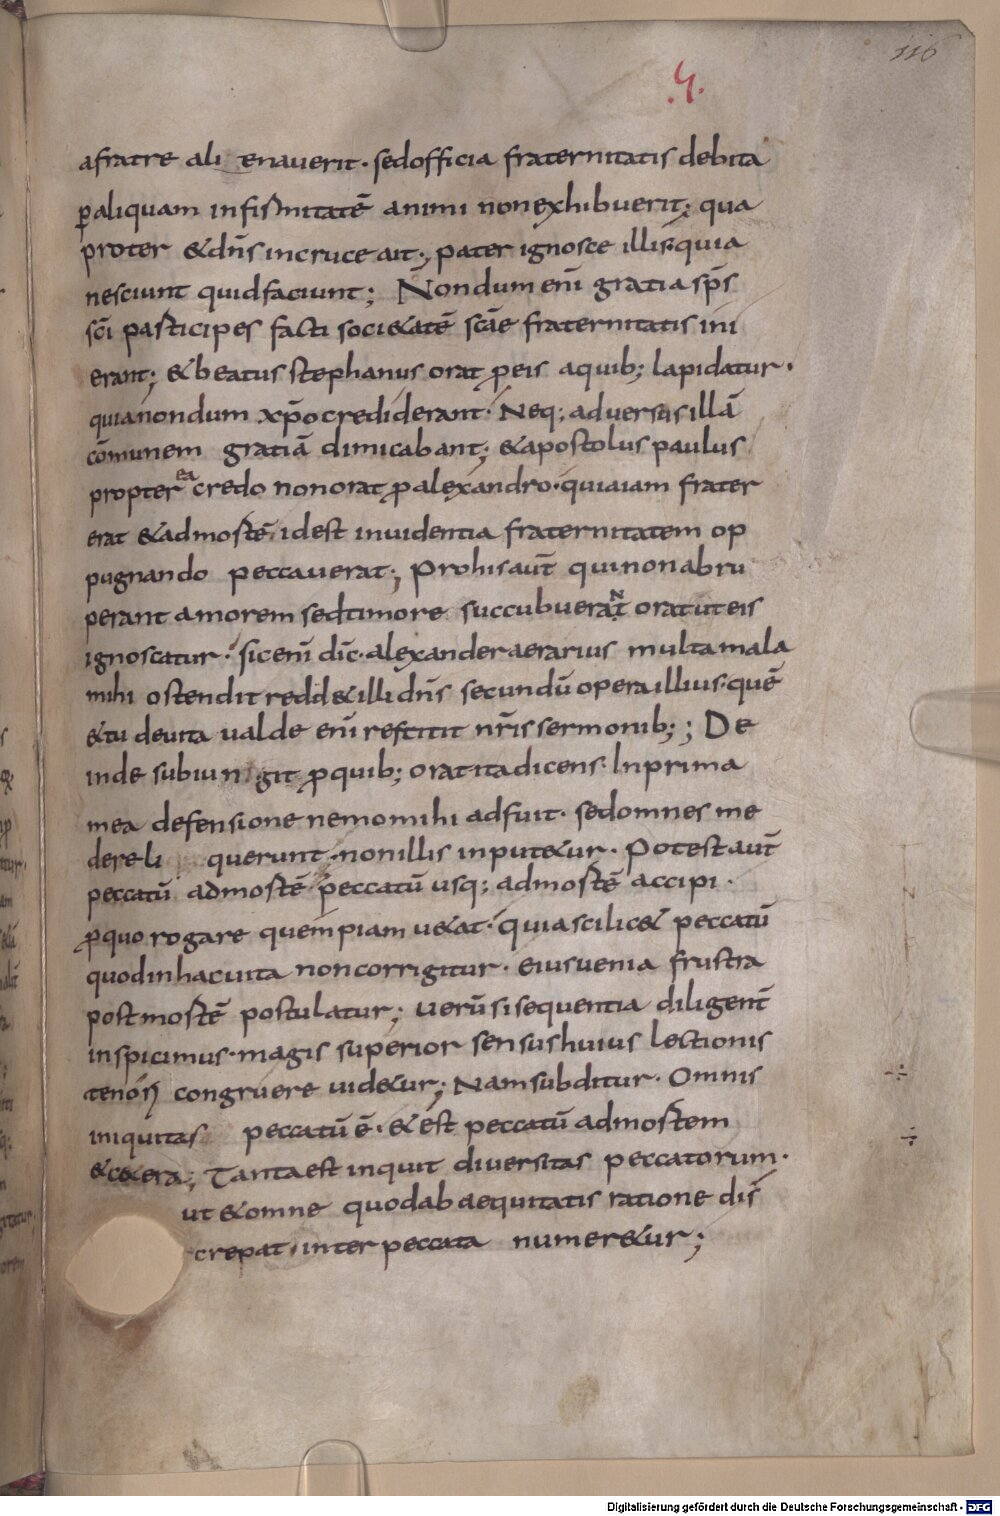 116
.5.
afratre ali enauerit · sedofficia fraternitatis debita
ꝑaliquam infirmitatē animi nonexhibuerit; qua
proter &dn̄s incruce ait; pater ignosce illis quia
nesciunt quidfaciunt; Nondum enī gratia sp̄s
sc̄i participes facti soci&atē sc̄ae fraternitatis ini
erant; &beatus stephanus orat ꝓeis aquib; lapidatur ·
quianondum xp̄o crediderant · Neq; aduersus illā
cōmunem gratiā dimicabant; &apostolus paulus
propter ea credo nonorat ꝓalexandro · quiaiam frater
erat &admortē idest inuidentia fraternitatem op
pugnando peccauerat; Prohis aūt quinonabru
perant amorem sedtimore succubuerat N oratuteis
ignoscatur · sicenī dic̄ · alexander aerarius multa mala
mihi ostendit redd&illi dn̄s secundū opera illius · quē
&tu deuita ualde enī restitit nr̄is sermonib; ; De
inde subiun git ꝓquib; orat ita dicens · Inprima
mea defensione nemomihi adfuit · sedomnes me
dereli querunt · nonillis input&ur · Potest aūt
peccatū admortē peccatū usq; admortē accipi ·
ꝓquo rogare quempiam u&at · quia scilic& peccatū
quodinhacuita noncorrigitur · eiusuenia frustra
postmortē postulatur; uerū sisequentia diligent̄
inspicimus · magis superior sensus huius lectionis
tenori congruere uid&ur; Nam subditur · Omnis
iniquitas peccatū ē · &ēst peccatū admortem
&c&era; Tanta est inquit diuersitas peccatorum ·
ut &omne quodabaequitatis ratione dis
crepat · inter peccata numer&ur;
Digitalisierung gefördert durch die Deutsche Forschungsgemeinschaft - DFG